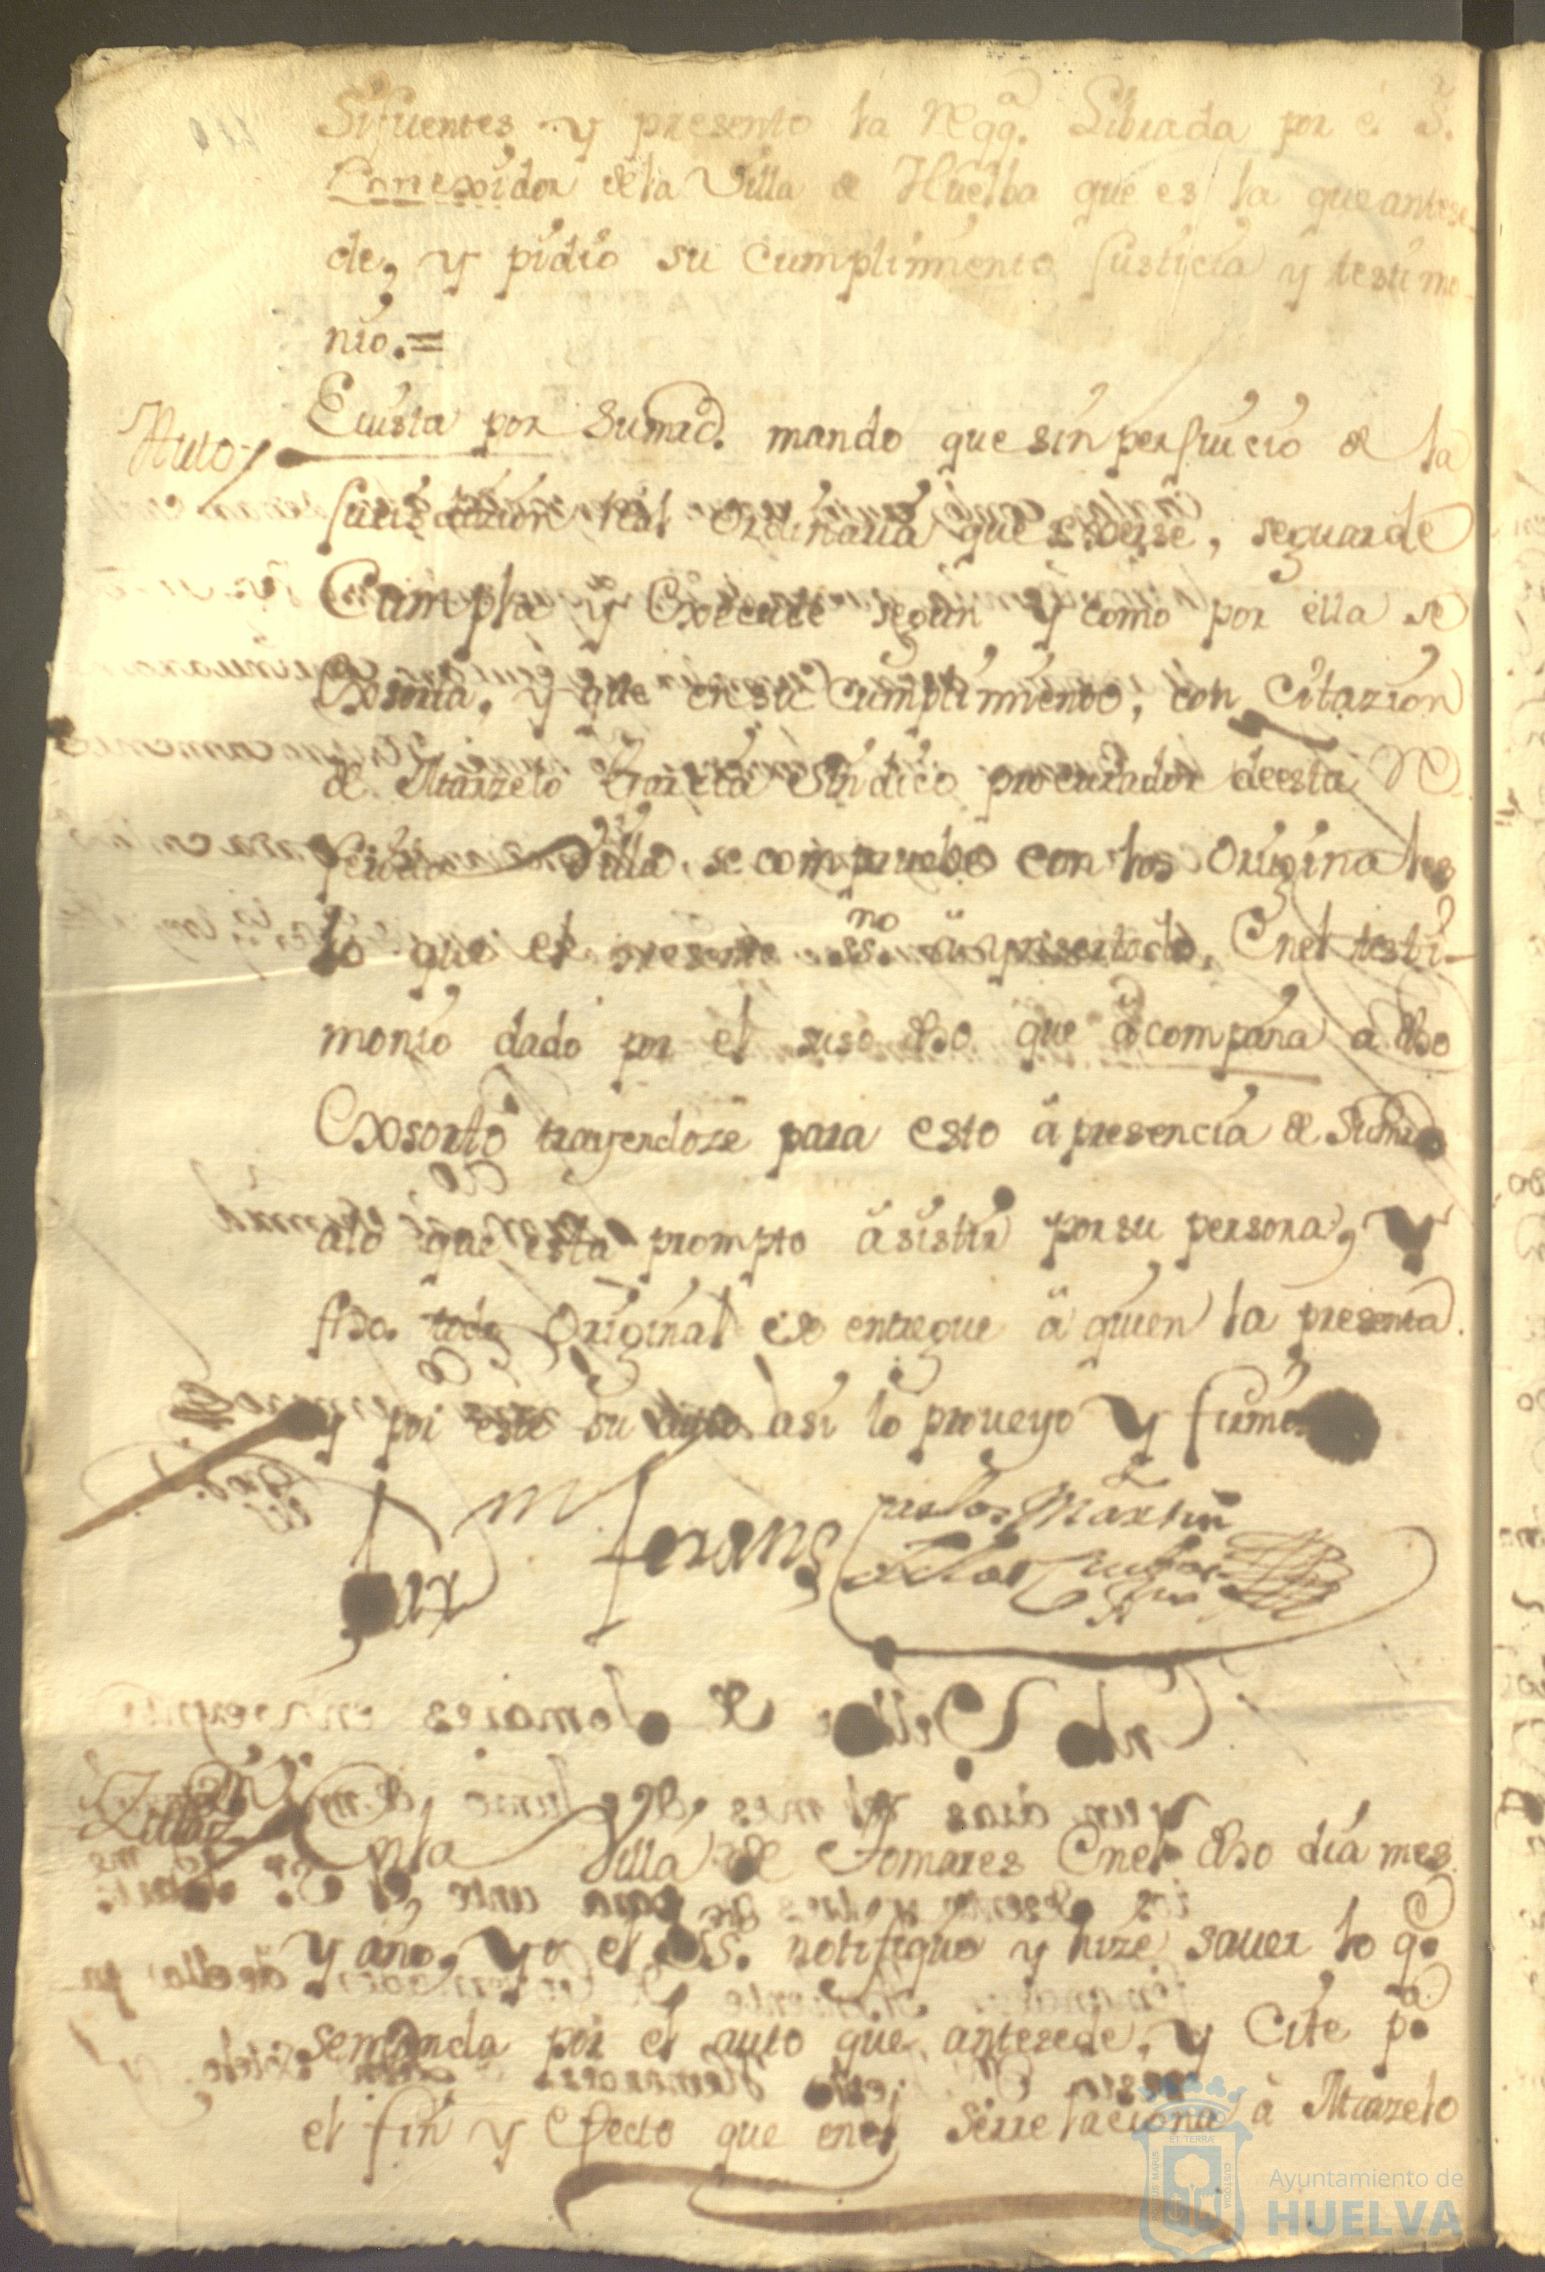 Sifuentes y presento la Reqq.ª Librada por el S.r
Correxidor de la Villa de Huelba que es la que antese
de, y pidio su Cumplimiento Justicia y testimo-
nio.=
Auto
Evista por Sumrd. mando que sin perjuicio de la
Jurisdizion Real Ordinaria que exerse, seguarde
Cumpla y Execute segun y como por ella se
Exsorta, y que ensu Cumplimiento, con Citazion
de Marzelo Garcia Sindico procurador deesta Re
ferida Villa, se compruebe con los Originales
lo que el presente ss.no à insertado, Enel testi-
monio dado por el suso dho que àcompaña a dho
Exsorto trayendoze para esto à presencia de Sumrd
alo que esta prompto àsistir por su persona, y
fho. todo Original se entregue à quien la presenta
y por este su auto asi lo proveyo y firmo
m. ferans
Carlos Martin
de la
Enla Villa de Tomares Enel dho dia mes
y año, yo el ss. notifique y hize saver lo q.e
semanda por el auto que antesede, y Cite p.a
el fin y Efecto que enel Serrelaciona à Marzelo
Ayuntamiento de
HUELVA